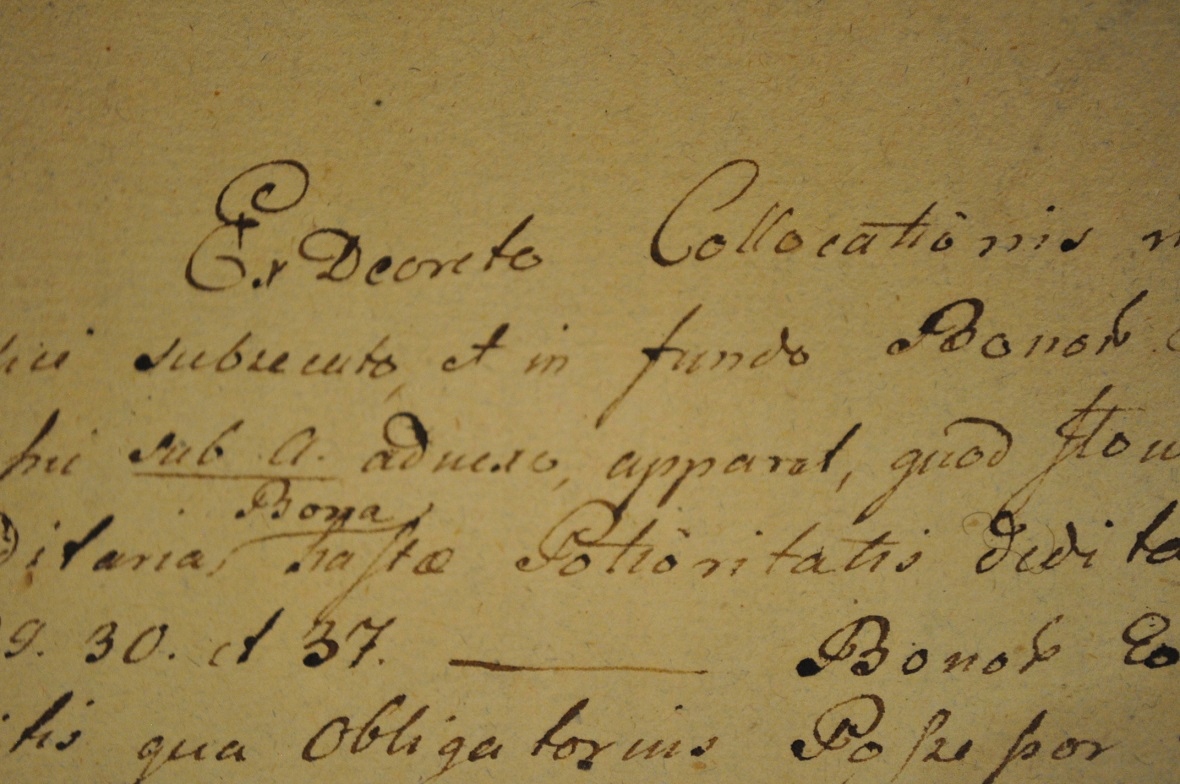 Ex Decreto Collocationis
subsecuto, et in fundo Bonoꝝ
sub A. adnexo, apparet, quod
Bona
ditaria, hastæ Potioritatis dedita
9. 30. et 37. — Bonoꝝ
qua Obligatorius Posse por